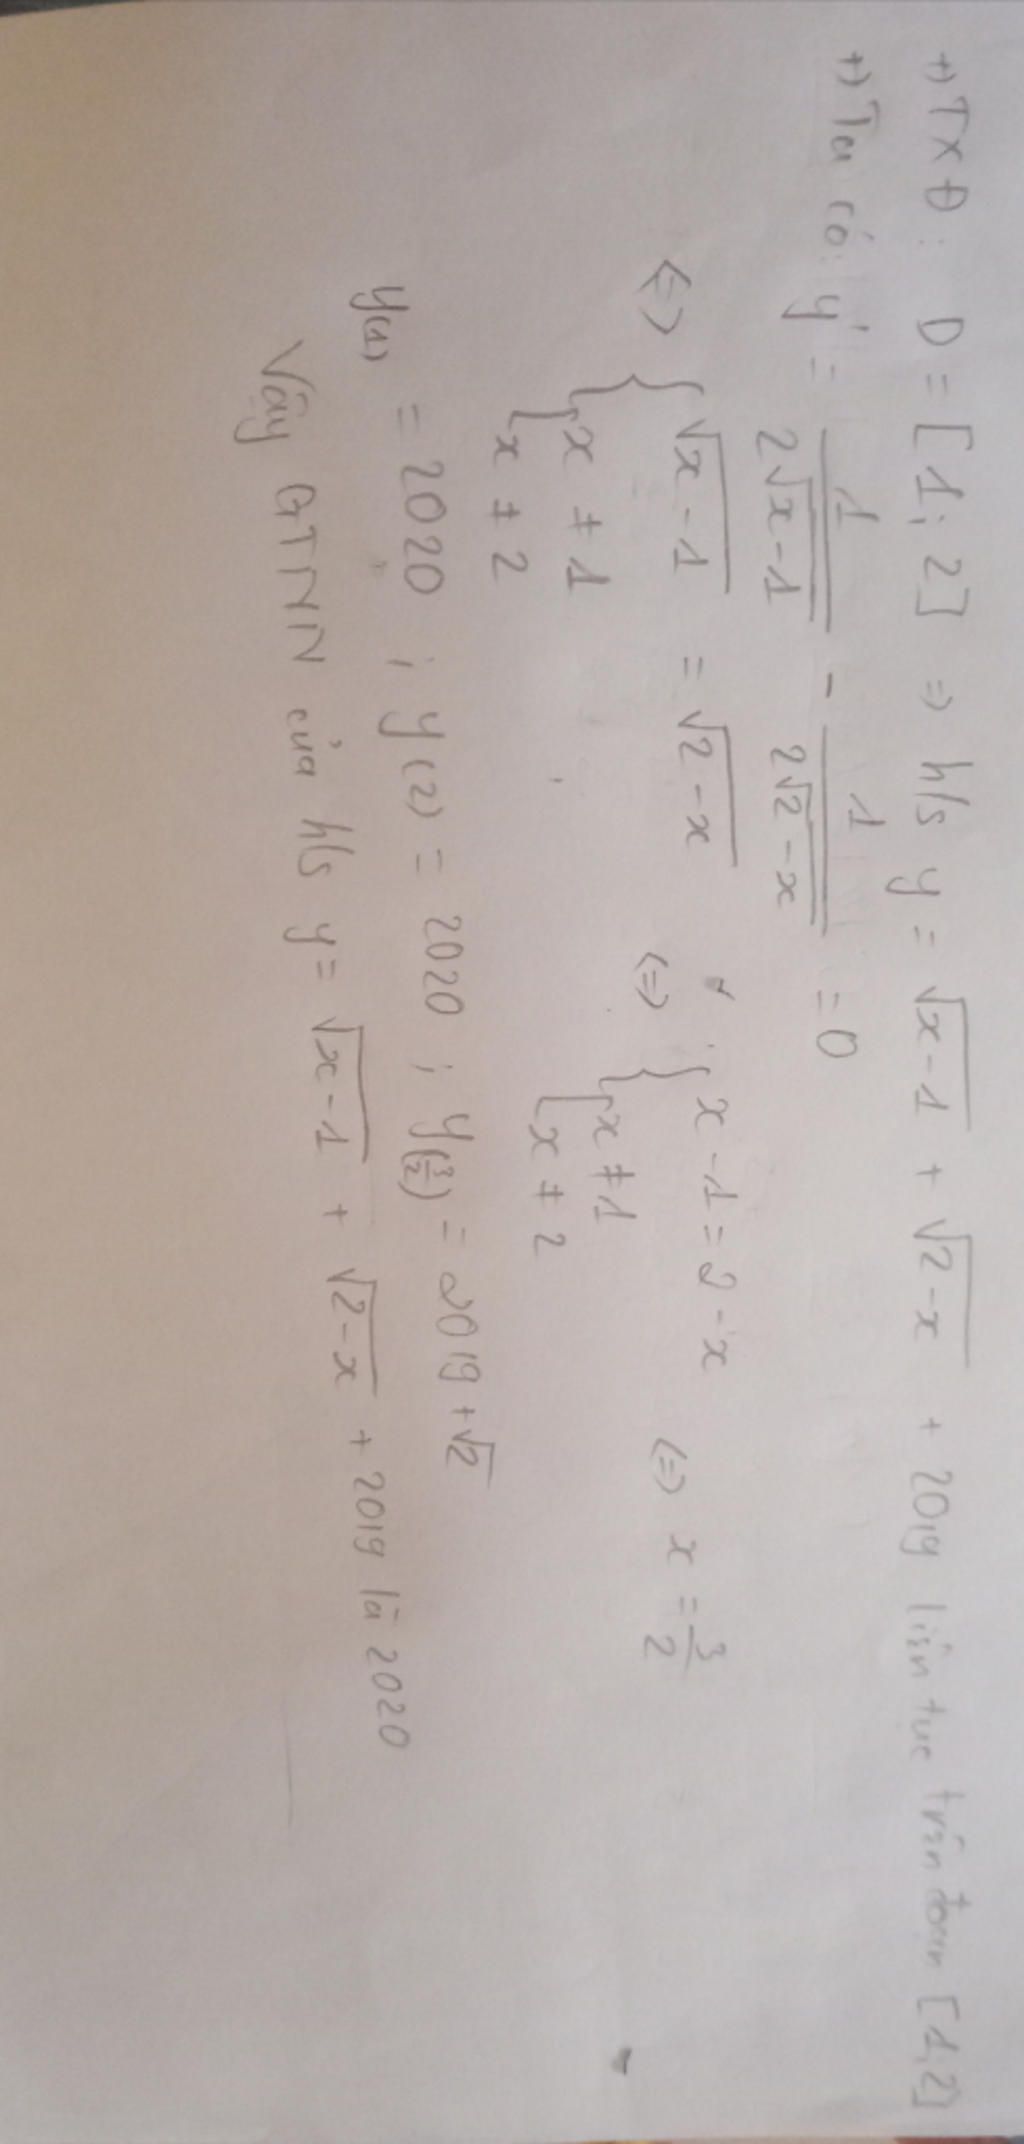 +) TXĐ: D = [1; 2] => h/s y = √(x-1) + √(2-x) + 2019 liên tục trên đoạn [1,2]
+) Ta có: y' = 1/(2√(x-1)) - 1/(2√(2-x)) = 0
<=> { √(x-1) = √(2-x) <=> { x-1 = 2-x <=> x = 3/2
[ x ≠ 1 [ x ≠ 1
x ≠ 2 x ≠ 2
y(1) = 2020 ; y(2) = 2020 ; y(3/2) = 2019 + √2
Vậy GTNN của h/s y = √(x-1) + √(2-x) + 2019 là 2020